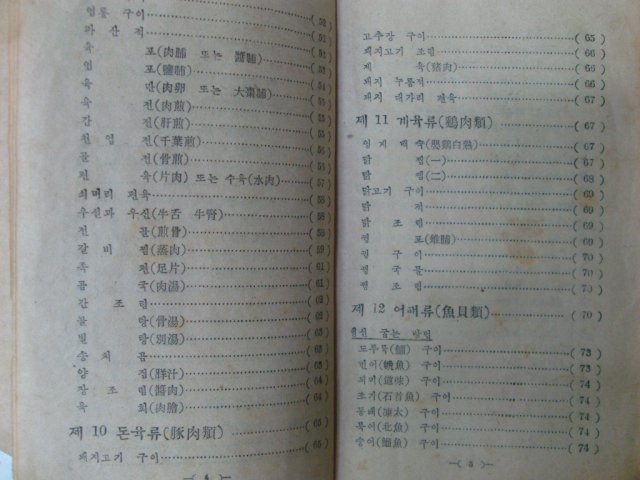 염통 구이 ( 52
육 포(肉脯 또는 醬脯) ( 53
염 포(鹽脯)
육 만(肉卵 또는 大
육 전(肉煎)
간 전(肝煎)
천엽 전(千葉煎)
골 전(骨煎)
편 육(片肉) 또는 수육(水肉) ( 57
쇠머리 편육
우설과 우신(牛舌 牛腎) ( 58
전 골(煎骨) ( 58
갈비 찜(蒸肉) ( 59
족 편(足片) ( 61
곰 국(肉湯) ( 61
간 조림 ( 62
골 탕(骨湯) ( 62
별 탕(別湯)
송치 곰
양 즙
장 조림(醬肉) ( 64
육 회(肉膾) ( 64
제 10 돈육류(豚肉類) ( 65
돼지고기 구이 ( 65
고추장 구이 ( 65 )
돼지고기 조림 ( 66 )
제 육(豬肉) ( 66 )
돼지 누름적 ( 66 )
돼지 대가리 편육 ( 67 )
제 11 계육류(鷄肉類) ( 67 )
영계 백숙(嬰鷄白熟) ( 67 )
닭 찜(一) ( 67 )
닭 찜(二) ( 68 )
닭고기 구이 ( 69 )
닭 ( 69 )
닭 조림 ( 69 )
꿩 포(雉脯) ( 69 )
꿩 구이 ( 70 )
꿩 국물 ( 70 )
꿩 조림 ( 70 )
제 12 어패류(魚貝類) ( 70 )
생선 굽는 방법
도루묵 구이 ( 73 )
민어 구이 ( 73 )
도미(道味) 구이 ( 74 )
조기(石首魚) 구이 ( 74 )
동태(凍太) 구이 ( 74 )
북어(北魚) 구이 ( 74 )
숭어 구이 ( 74 )
—( 4 )—
—( 5 )—